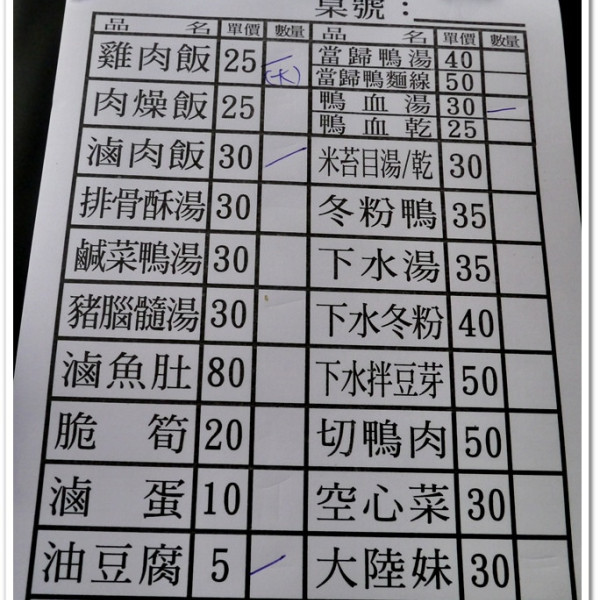 桌號：
品名 單價 數量 品名 單價 數量
雞肉飯 25 (大) 當歸鴨湯 40
當歸鴨麵線 50
肉燥飯 25 鴨血湯 30
鴨血乾 25
滷肉飯 30 米苔目湯/乾 30
排骨酥湯 30 冬粉鴨 35
鹹菜鴨湯 30 下水湯 35
豬腦髓湯 30 下水冬粉 40
滷魚肚 80 下水拌豆芽 50
脆筍 20 切鴨肉 50
滷蛋 10 空心菜 30
油豆腐 5 大陸妹 30